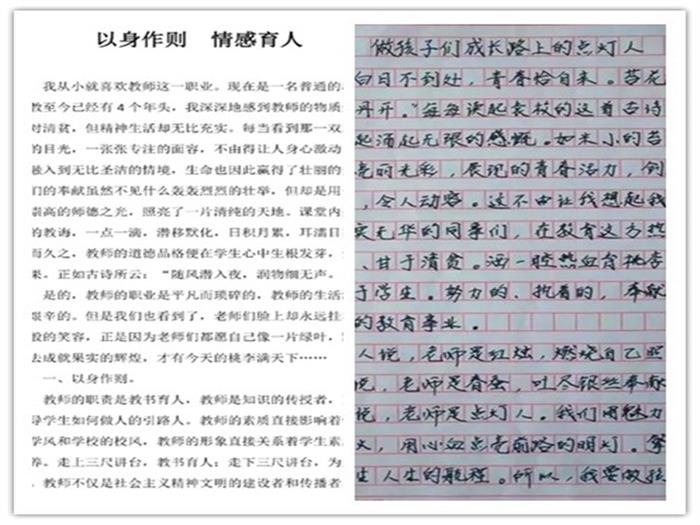 以身作则　情感育人
我从小就喜欢教师这一职业。现在是一名普通的
教至今已经有4个年头，我深深地感到教师的物质
对清贫，但精神生活却无比充实。每当看到那一双
的目光，一张张专注的面容，不由得让人身心激动
融入到无比圣洁的情境，生命也因此赢得了壮丽的
们的奉献虽然不见什么轰轰烈烈的壮举，但却是用
崇高的师德之光，照亮了一片清纯的天地。课堂内
的教诲，一点一滴，潜移默化，日积月累，耳濡目
而久之，教师的道德品格便在学生心中生根发芽，
果。正如古诗所云："随风潜入夜，润物细无声。
是的，教师的职业是平凡而琐碎的，教师的生活
艰辛的。但是我们也看到了，老师们脸上却永远挂
的笑容，正是因为老师们都愿自己像一片绿叶，
去成就果实的辉煌，才有今天的桃李满天下……
一、以身作则。
教师的职责是教书育人，教师是知识的传授者，
导学生如何做人的引路人。教师的素质直接影响着
学风和学校的校风，教师的形象直接关系着学生素
养。走上三尺讲台，教书育人；走下三尺讲台，为
。教师不仅是社会主义精神文明的建设者和传播者
做孩子们成长路上的点灯人
白日不到处，青春恰自来。苔花
丹开。"每每读起袁枚的这首古诗
起涌起无限的感慨。如米小的苔
亮丽光彩，展现的青春活力，倒
，令人动容。这不由让我想起我
实无华的同事们，在教育这方热
、甘于清贫。洒一腔热血育桃李
于学生。努力的、执着的，奉献
的教育事业。
人说，老师是红烛，燃烧自己照
说，老师是春蚕，吐尽银丝奉献
说，老师是点灯人。我们用魅力
火，用心血点亮前路的明灯。
生人生的航程。所以，我要做孩